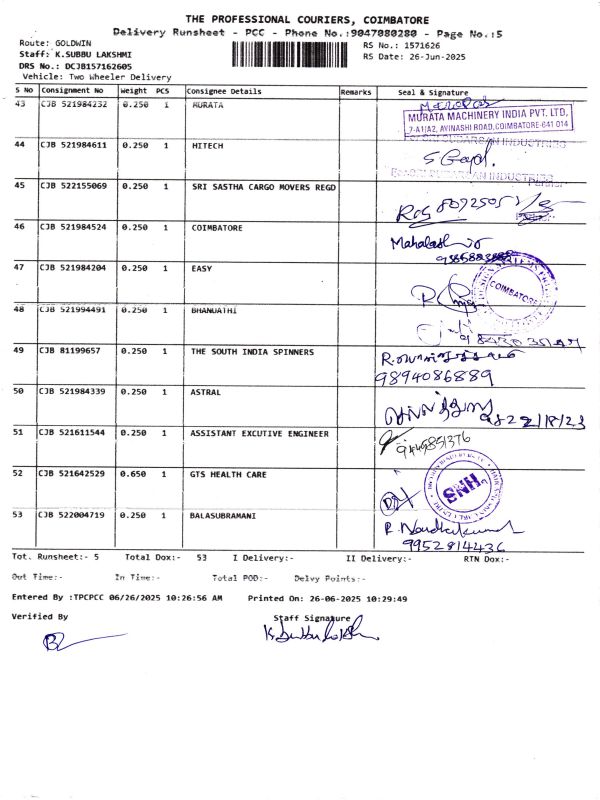 THE PROFESSIONAL COURIERS, COIMBATORE
Delivery Runsheet - PCC - Phone No.:9047080280 - Page No.:5
Route: GOLDWIN RS No.: 1571626
Staff: K.SUBBU LAKSHMI RS Date: 26-Jun-2025
DRS No.: DCJB157162605
Vehicle: Two Wheeler Delivery
S No Consignment No Weight PCS Consignee Details Remarks Seal & Signature
43 CJB 521984232 0.250 1 MURATA
MURATA MACHINERY INDIA PVT. LTD,
7-A1/A2, AVINASHI ROAD, COIMBATORE-641 014
44 CJB 521984611 0.250 1 HITECH
S Gopal.
45 CJB 522155069 0.250 1 SRI SASTHA CARGO MOVERS REGD
46 CJB 521984524 0.250 1 COIMBATORE
47 CJB 521984204 0.250 1 EASY
COIMBATORE
48 CJB 521994491 0.250 1 BHANUATHI
49 CJB 81199657 0.250 1 THE SOUTH INDIA SPINNERS
9894086889
50 CJB 521984339 0.250 1 ASTRAL
51 CJB 521611544 0.250 1 ASSISTANT EXCUTIVE ENGINEER
9445851376
52 CJB 521642529 0.650 1 GTS HEALTH CARE
SNH
53 CJB 522004719 0.250 1 BALASUBRAMANI
R. Nandhakumar
9952814436
Tot. Runsheet:- 5 Total Dox:- 53 I Delivery:- II Delivery:- RTN Dox:-
Out Time:- In Time:- Total POD:- Delvy Points:-
Entered By :TPCPCC 06/26/2025 10:26:56 AM Printed On: 26-06-2025 10:29:49
Verified By Staff Signature
K. Subbu Lakshmi